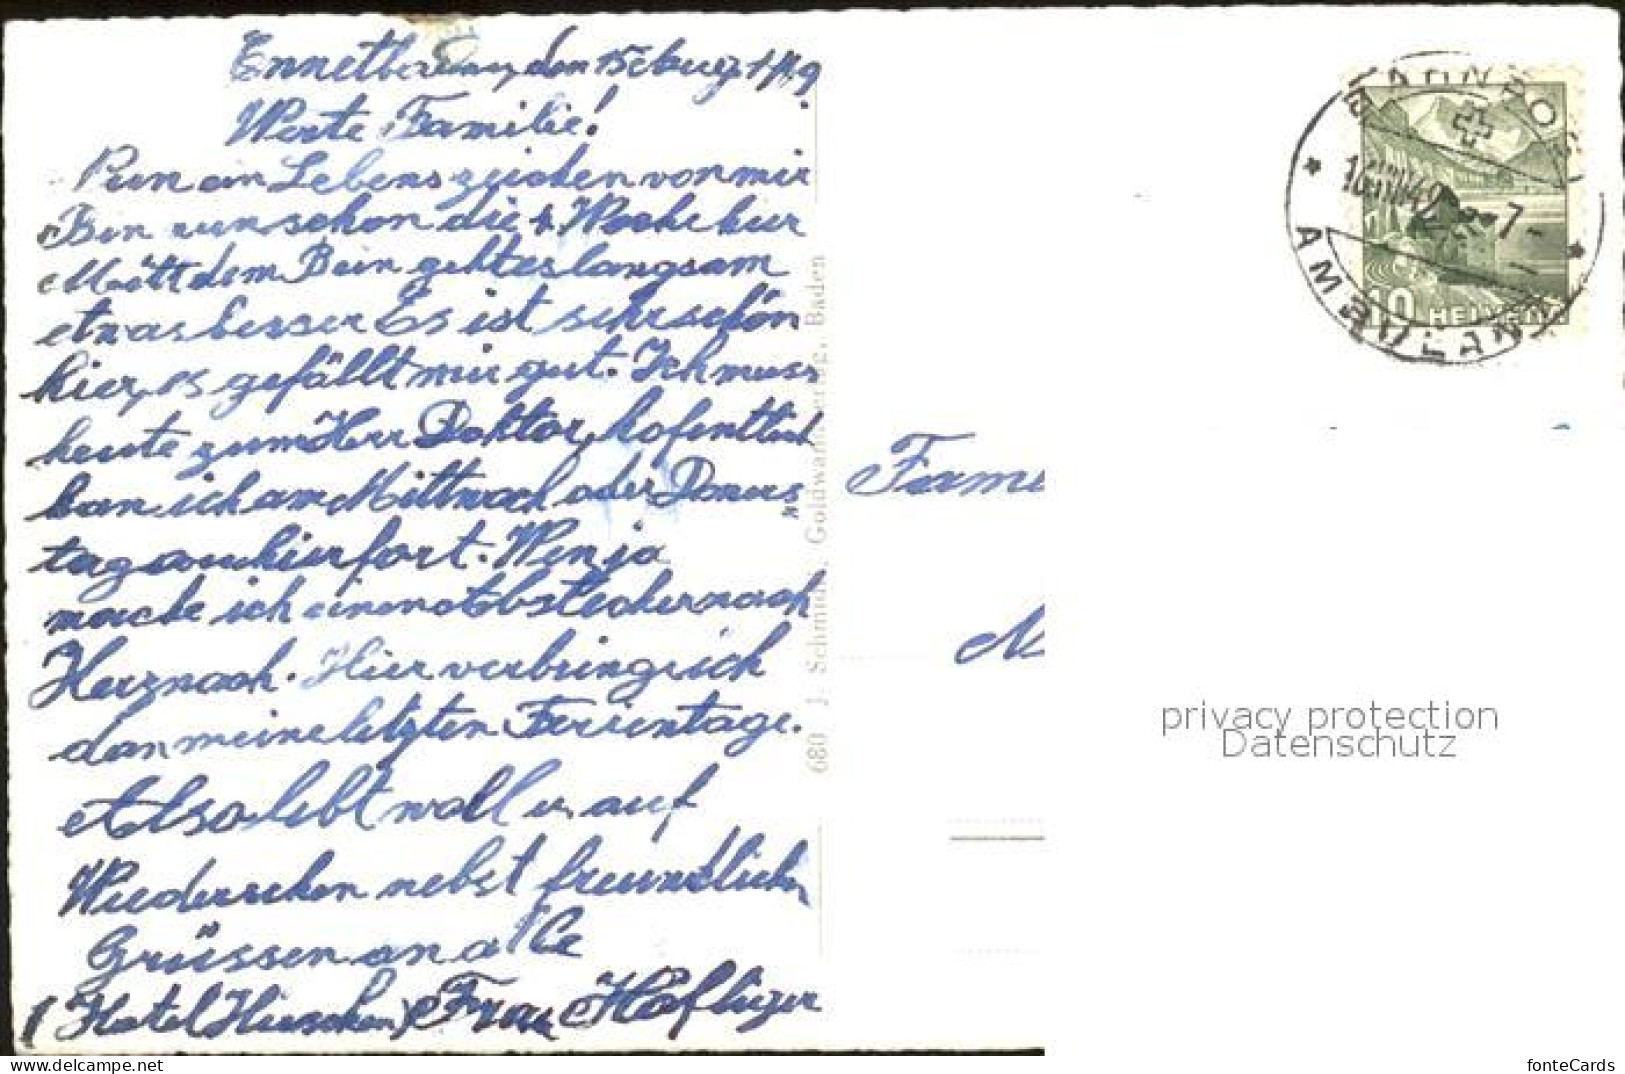 Ennetbaden, den 15 Aug. 1949
Werte Familie!
Nun ein Lebenszeichen von mir
Bin nun schon die 4. Woche hier
Mitt dem Bein geht es langsam
etwas besser Es ist sehr schön
hier, es gefällt mir gut. Ich muss
heute zum Herr Doktor, hofentlich
kan ich am Mittwoch oder Doners
tag von hier fort. Wen ja
mache ich einen Abstecher nach
Herznach. Hier verbring ich
dan meine letzten Ferientage.
Also lebt woll u. auf
Wiedersehen nebst freundlichen
Grüssen an alle
(Hotel Hirschen) Frau Häfliger
680 J. Schmidli, Goldwandverlag, Baden
10 HELVETIA
AMBULANT
Fami
privacy protection
Datenschutz
fonteCards